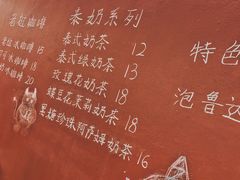 老挝咖啡
泰奶系列
特色
泰式奶茶 12
泰式绿奶茶 13
玫瑰花奶茶 18
蝶豆花茉莉奶茶 18
黑糖珍珠阿萨姆奶茶 16
泡鲁达
15
15
18
20